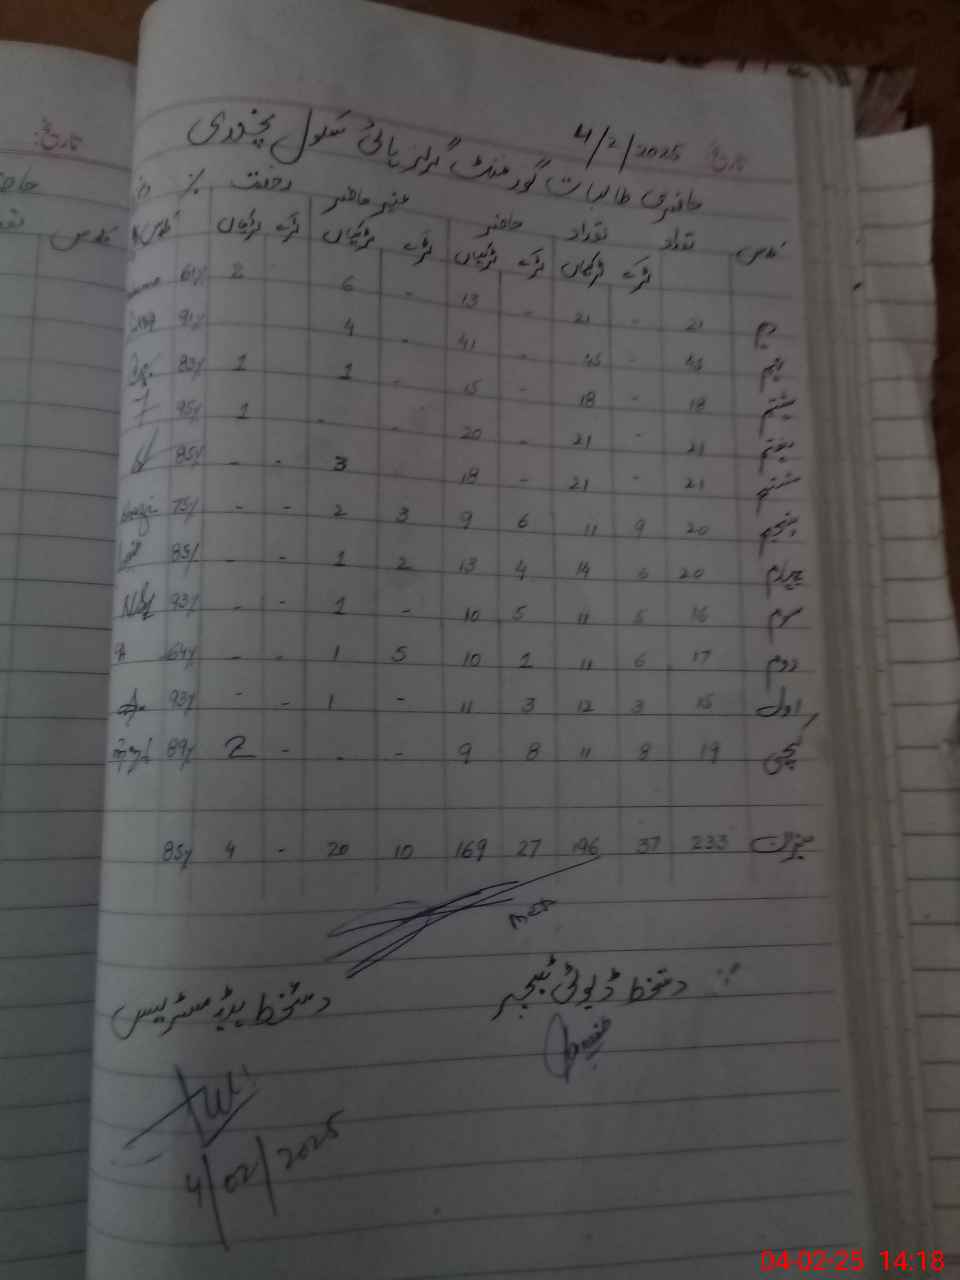 تاریخ: 4/2/2025
حاضری طالبات گورنمنٹ گرلز ہائی سکول
کلاس تعداد تعداد حاضر غیر حاضر رخصت %
لڑکے لڑکیاں لڑکے لڑکیاں لڑکے لڑکیاں لڑکے لڑکیاں
دہم 21 - 21 - 13 - 6 2 61%
نہم 45 - 45 - 41 - 4 91%
ہشتم 18 - 18 - 15 - 1 1 83%
ہفتم 21 - 21 - 20 - - 1 95%
ششم 21 - 21 - 18 3 - - 85%
پنجم 20 9 11 6 9 3 2 - - 75%
چہارم 20 6 14 4 13 2 1 - - 85%
سوم 16 5 11 5 10 - 1 - - 93%
دوم 17 6 11 1 10 5 1 - - 64%
اول 15 3 12 3 11 - 1 - - 93%
کچی 19 8 11 8 9 - - - 2 89%
میزان 233 37 196 27 169 10 20 - 4 85%
دستخط ڈیوٹی ٹیچر
دستخط ہیڈ مسٹریس
4/02/2025
تاریخ:
کلاس
04-02-25 14:18